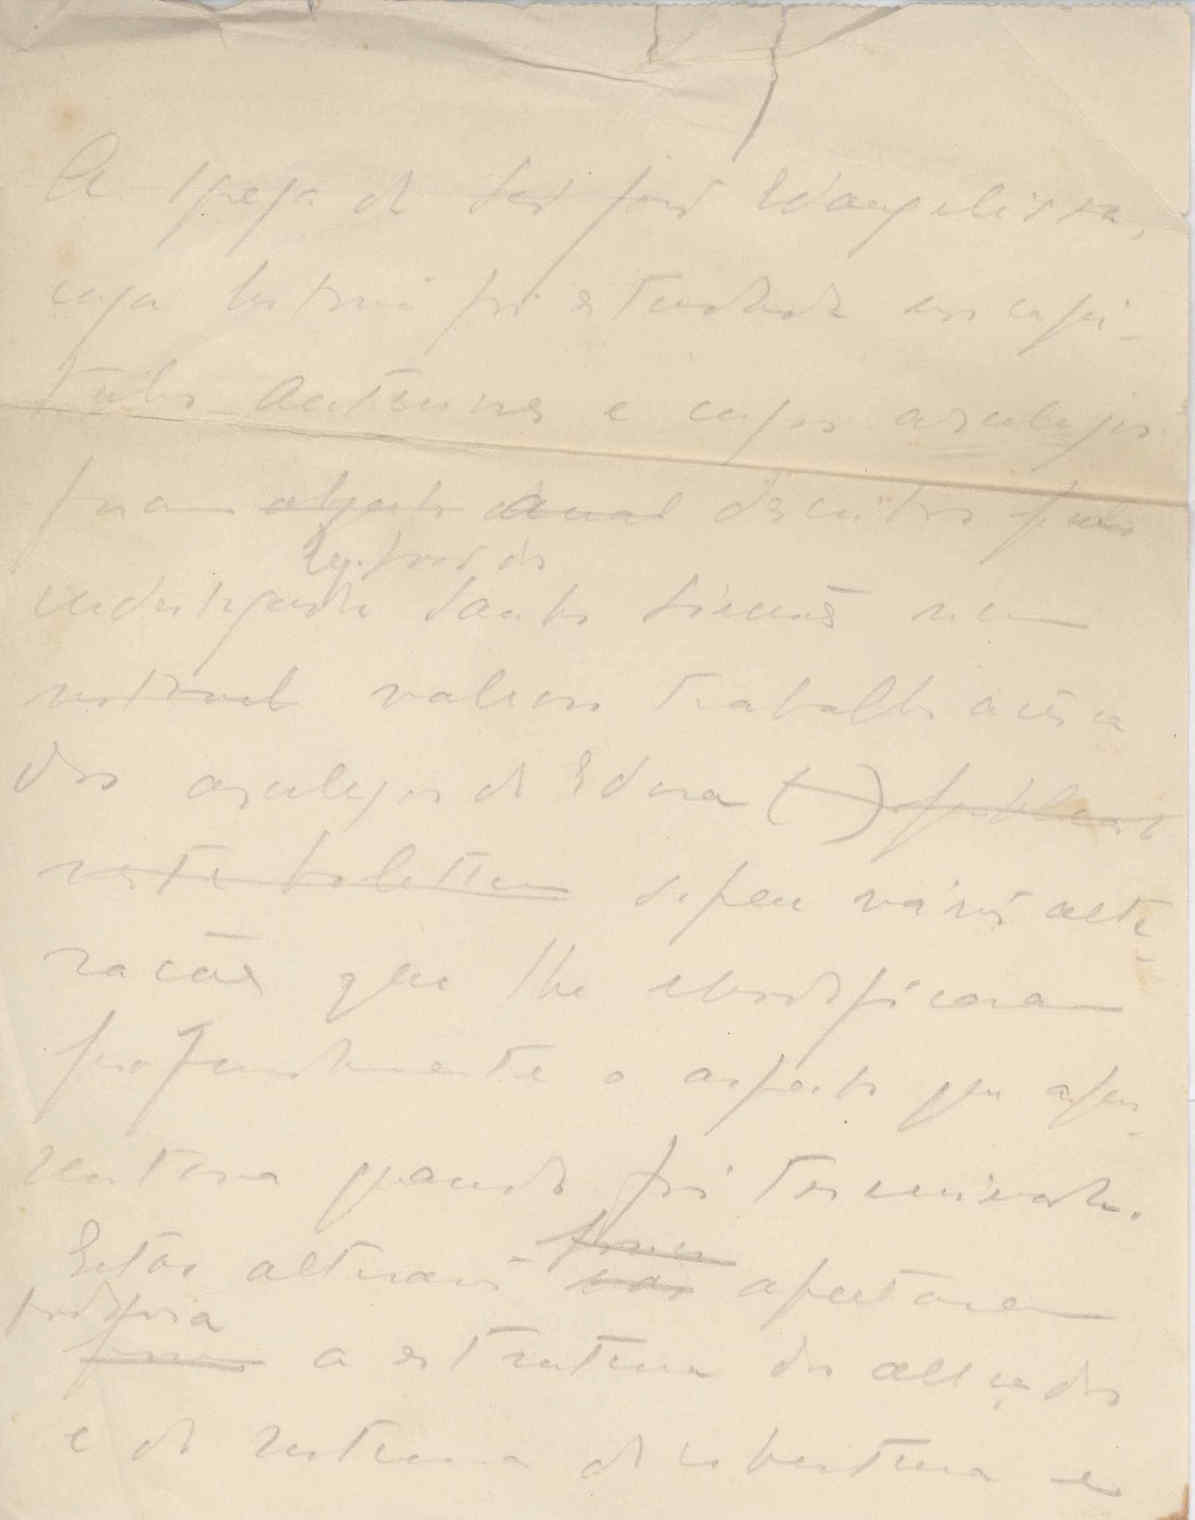 A Igreja de São João Evangelista,
cuja historia foi estudada nos capi-
tulos anteriores e cujos azulejos
foram objecto descritos pelo
investigador Santos Simões num
notavel valioso trabalho acerca
dos azulejos de Evora ( )
neste boletim sofreu várias alte-
rações que lhe modificaram
profundamente o aspecto que apre-
sentava quando foi terminada.
Estas alterações não afectaram
própria a estrutura dos alçados
e do sistema de cobertura e